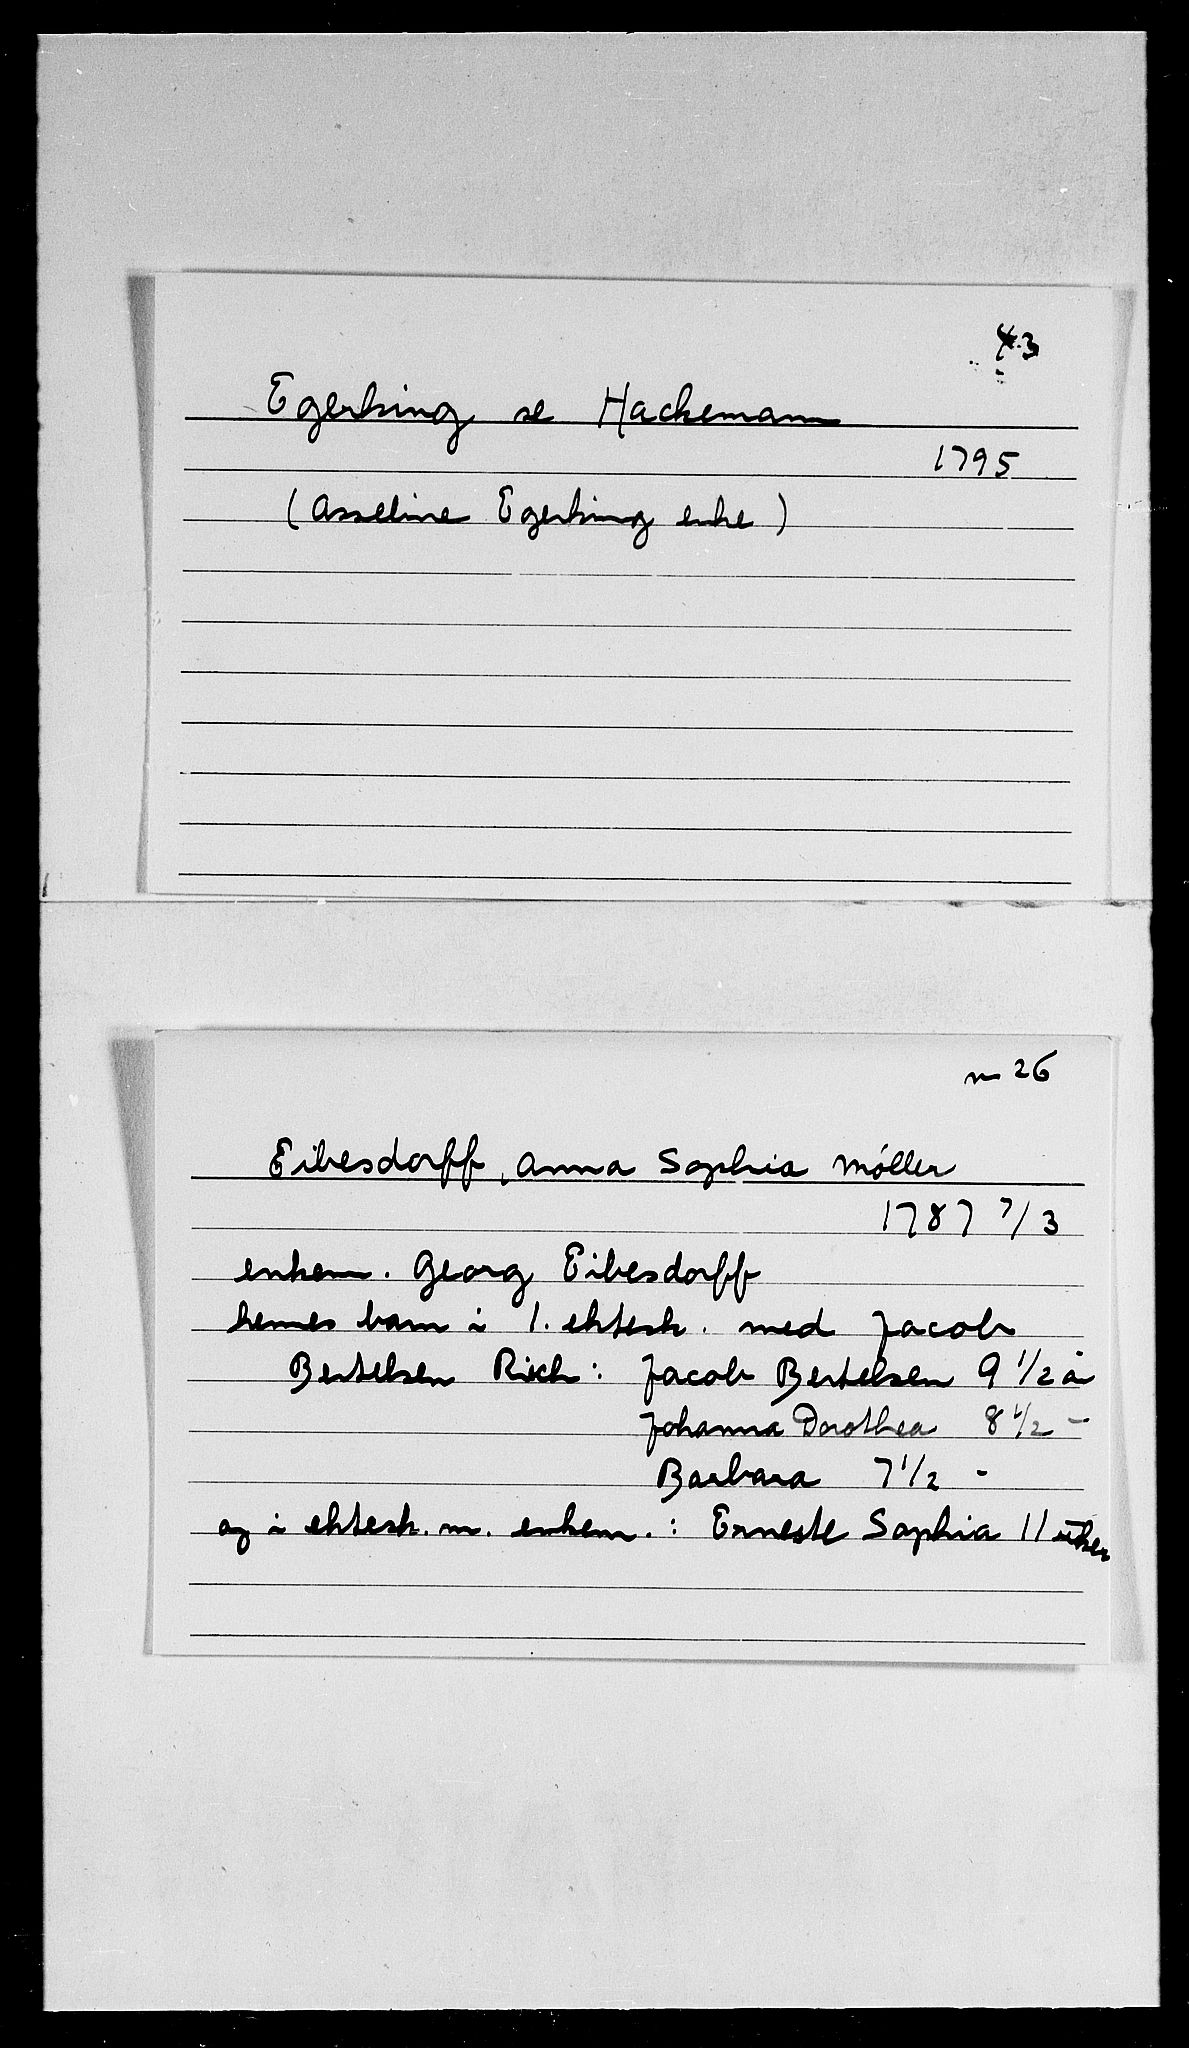 43
Egerking se Hackemann
1795
(Asseline Egerking enke)
n 26
Eibesdorff, Anna Sophia Møller
1787 7/3
enkem. Georg Eibesdorff
hennes barn i 1. ektesk. med Jacob
Bertelsen Risch: Jacob Bertelsen 9 1/2 år
Johanna Dorothea 8 1/2 -
Barbara 7 1/2 -
og i ektesk. m. enkem.: Erneste Sophia 11 uker